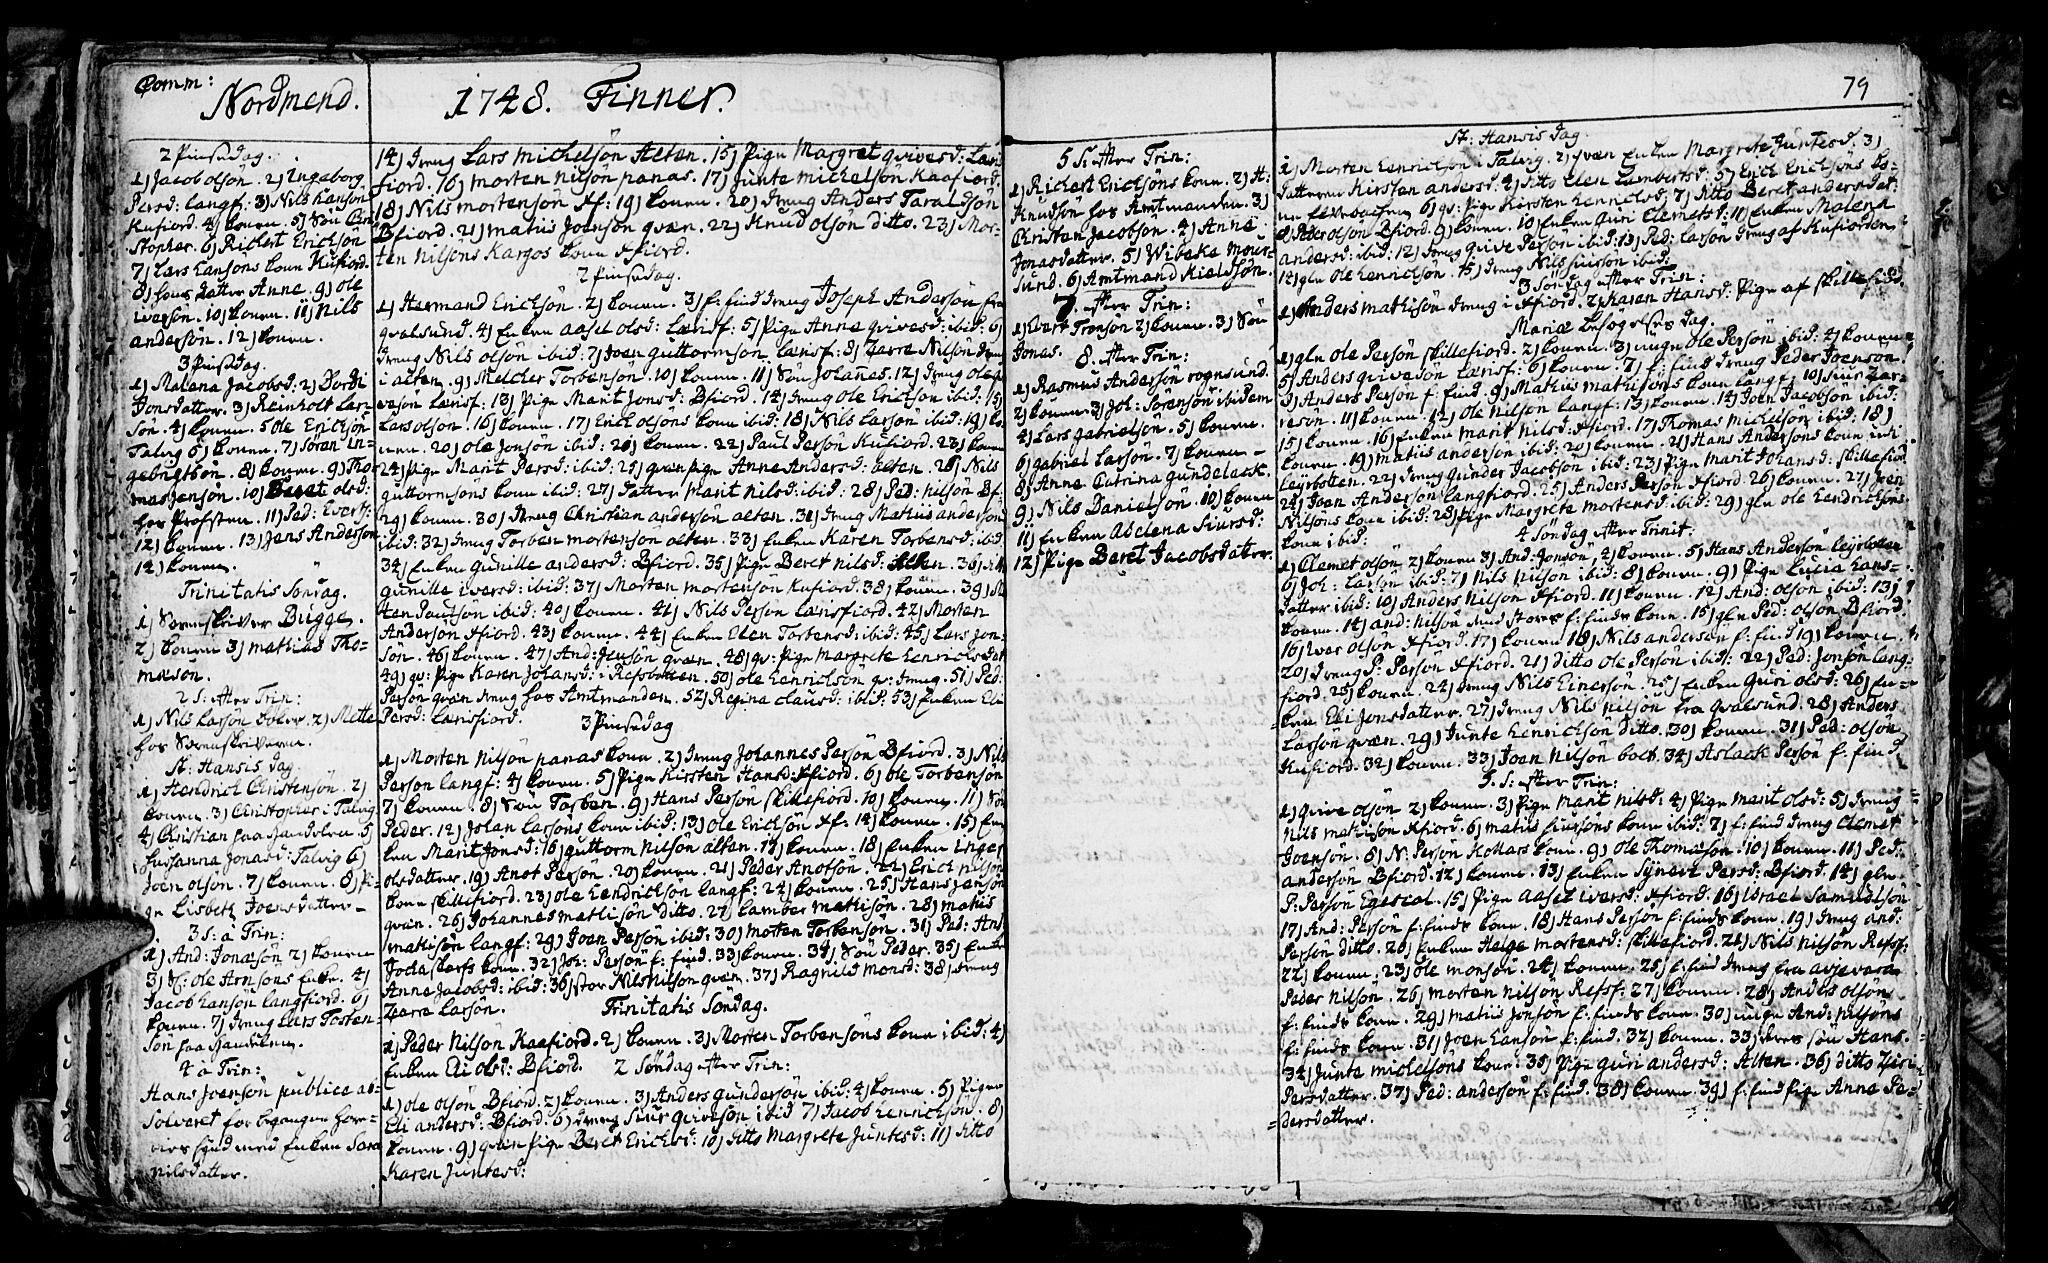 Comm:
Nordmend.
2 Pinsedag.
1) Jacob olsön. 2) Ingeborg
Persd: langf: 3) Nils hanson
Kufiord. 4) konen. 5) Sön Chri
stopher. 6) Richert Erickson
7) Lars hansöns kone Kufiord.
8) hans datter Anne. 9) ole
iverson. 10) konen. 11) Nils
andersön. 12) konen.
3 Pinsedag.
1) Malena Jacobsd: 2) Dordi
Jonsdatter. 3) Reinholt Lar-
sön. 4) konen. 5 ole Erickson
Talvig 6) konen. 7) Sören In-
gebrigtsön. 8) konen. 9) Tho
mas jenson. 10) Beret olsd:
hos Profsten. 11) Ped: Evers:
12) konen. 13) Jens Anderson
14) konen.
Trinitatis Söndag.
1) Sorenskriver Bugge.
2) konen 3) mathias Tho-
mæson.
2 S: after Trin:
1) Nils Larson 2) Mette
hos Sorenskriveren.
St: Hansis dag.
1) Hendrich Christensön. 2)
konen. 3) Christopher i Talvig
4) Christian paa 5
Susanna Jonasd: Talvig 6)
Joen olson. 7) konen. 8) Pi-
ge Lisbeth Joensdatter.
3 S: a Trin:
1) And: Jonasön 2) konen
3) Sl: ole Arnsons Enke. 4)
Jacob hansön langfiord. 6)
konen. 7) dreng Lars Tosten-
son paa
4 a Trin:
Hans Joensön publice ab-
solveret for begangen hore-
ries synd med Enken Sara
Nilsdatter.
1748. Finner.
14) dreng Lars Michelsön Alten. 15) Pige Margret qvivesd: Læris
fiord. 16) morten nilson panas. 17) Junte michelson Kaafiord.
18) Nils mortensön Xf: 19) konen. 20) dreng Anders Taraldsön
Bfiord. 21) matius Joenson qvæn. 22) Knud olsön ditto. 23) Mor-
ten nilsöns Kargos kone Xfiord.
2 Pinsedag.
1) Hermand Erickson. 2) konen. 3) f: find dreng Joseph Andersön fra
qvalsund. 4) Enken aasel olsd: Lærisf: 5) Pige Anne qvivesd: ibid: 6)
dreng Nils olsön ibid: 7) Joen guttormsön Lærisf: 8) Zarre Nilsön dreng
i alten. 9) Melcher Torbensön. 10) konen. 11) Sön Johanes. 12) dreng ole
verson Lærisf: 13) Pige Marit Jonsd: Bfiord. 14) dreng ole Erickson ibid: 15)
Lars olson. 16) konen. 17) Erich olsöns kone ibid: 18) Nils Larsön ibid: 19) ko
nen. 20) ole Jonsön ibid: 21) konen. 22) Paul Persön Kufiord. 23) konen
24) Pige Marit Persd: ibid: 25) qvæn pige Anne Andersd: alten. 26) Nils
guttormsöns kone ibid: 27) datter Marit Nilsd: ibid: 28) Ped: Nilsön Bf:
29) konen. 30) dreng Christian andersön alten. 31) dreng Matius andersön
ibid: 32) dreng Torben mortensön alten. 33) Enken Karen Torbensd: ibid:
34) Enken gunille andersd: Bfiord. 35) Pige Beret nilsd: Alten. 36)
gunille iversd: ibid: 37) Morten mortensön Kufiord. 38) konen. 39) M
ten Paulsön ibid: 40) konen. 41) Nils Person Lærisfiord. 42) Morten
Anderson Xfiord. 43) konen. 44) Enken Elen Torbensd: ibid: 45) Lars Jon-
sön. 46) konen. 47) And: Jensön qvæn. 48) qv: Pige Margrete Henricksdat
49) qv: Pige Karen Johansd: i Refsbotten. 50) ole Henrichsön qv: dreng. 51) Ped:
Person qvæn dreng hos Amtmanden. 52) Regina clausd: ibid: 53) Enken Eli
Persd: Lærisfiord.
3 Pinsedag
1) Morten Nilsön panas kone. 2) dreng Johannes Persön Bfiord. 3) Nils
Person langf: 4) konen. 5) Pige Kirsten Hansd: Xfiord. 6) ole Torbenson
7) konen. 8) Sön Torben. 9) Hans Persön Skillefiord. 10) konen. 11) Sön
Peder. 12) Johan Larsöns kone ibid: 13) ole Ericksön Xf: 14) konen. 15) En
ken Marit Jonsd: 16) guttorm Nilsön alten. 17) konen. 18) Enken Inger
olsdatter. 19) Anot Persön. 20) konen. 21) Peder Anotsön. 22) Erich nilsön
kone Skillefiord. 23) ole Hendrichsön langf: 24) konen. 25) Hans jenson
qvæn. 26) Johannes mathisön ditto. 27) Lamber mathisön. 28) matius
mathisön langf: 29) Joen Persön ibid: 30) morten Torbensön. 31) Ped: Hans
Jochastarfs kone. 32) Joh: Persön f: find. 33) konen. 34) Sön Peder. 35) Enken
Anne Jacobsd: ibid: 36) stor Nils Nilson qvæn. 37) Ragnild monsd: 38) dreng
Zarre Larsön.
Trinitatis Söndag.
1) Peder Nilsön Kaafiord. 2) konen. 3) Morten Torbensöns kone ibid: 4)
Enken Eli olsd: Bfiord. 2 Söndag after Trin:
1) ole olsön Bfiord. 2) konen. 3) Anders gundersön ibid: 4) konen. 5) Pigen
Eli andersd: Bfiord. 6) dreng Siur qvivesön ibid 7) Jacob Henrichsön. 8)
konen. 9) qvæn pige Beret Ericksd: 10) ditto Margrete Juntesd: 11) ditto
Karen Juntesd:
5 S: After Trin:
1) Richert Ericksöns kone. 2) H:
Knudsön hos Amtmanden. 3)
Christen Jacobson. 4) Anne
Jonasdatter. 5) Wibeke Mour-
sund. 6) Amtmand Kieldsön.
7. after Trin:
1) Evert Tronson 2) konen. 3) Sön
Jonas.
8. after Trin:
1) Rasmus Andersön rognsund.
2) konen 3) Joh: Sörensön ibidem
4) Lars Jabrielson. 5) konen.
6) gabriel Larson. 7) konen
8) Anne Catrina gundelack.
9) Nils Danielsön. 10) konen
11) Enken Adelena Siursd:
12) Pige Beret Jacobsdatter.
79
St: Hansis dag.
1) Morten Henricksön i Talvig. 2) qvæn Enken Margrete Juntesd. 3)
datteren Kirsten andersd: 4) ditto Elen Lambertsd: 5) Erich Ericksöns ko-
ne 6) qv: Pige Kirsten Henricksd: 7) ditto Beret andersdat:
8) Peder olson Bfiord. 9) konen. 10) Enken Guri Clemetsd: 11) Enken Malena
andersd: ibid: 12) dreng qvive Person ibid: 13) Ped: Larsön dreng af Kufiorden
14) gln ole Henricksön. 15) dreng Nils Siurson ibid:
3 Söndag after Trin:
1) Anders mathisön dreng i Xfiord. 2) Karen Hansd: Pige af Skillefiord.
Mariæ besögelses dag.
1) gln ole Persön Skillefiord. 2) konen. 3) unge ole Persön ibid: 4) konen
5) Anders qviveson Lærisf: 6) konen. 7) f: find dreng Peder Joenson.
8) Anders Persön f: find. 9) Mathius mathisöns kone langf: 10) Siur Zar-
resön. 11) konen. 12) ole Nilson langf: 13) konen. 14) Joen Jacobsön ibid:
15) konen. 16) Enken marit Nilsd: Xfiord. 17) Thomas michelson ibid: 18)
konen. 19) matius anderson ibid: 20) konen. 21) Hans Andersöns kone
Leyrbotten. 22) dreng Gunder Jacobson ibid: 23) Pige Marit Johansd: Skillefiord
24) Joen Anderson langfiord. 25) Anders Persön Xfiord. 26) konen. 27) Joen
Nilsöns kone ibid: 28) Pige Margrete mortensd: ibid: 29) gln ole Hendricksöns
kone ibid:
4 Söndag after Trinit:
1) Clemet olsön. 2) konen 3) And: Jonson. 4) konen. 5) Hans Andersön Leyrbotten
6) Joh: Larsön ibid: 7) Nils Nilson ibid: 8) konen. 9) Pige Lucia Hans-
datter ibid: 10) Anders Nilson Xfiord. 11) konen. 12) And: olson ibid: 13)
konen. 14) and: nilson med stores f: finds kone. 15) gln Ped: olson Bfiord.
16) Iver olsön Xfiord. 17) konen 18) Nils anderson f: find 19) konen.
20) dreng P: Person Xfiord. 21) ditto ole Persön ibid: 22) Ped: Jonsön lang-
fiord. 23) konen. 24) dreng Nils Einersön. 25) Enken Guri olsd: 26) En-
ken Eli Jonsdatter. 27) dreng Nils Nilson fra qvalsund. 28) Anders
Larsön qvæn. 29) Junte Henricksön ditto. 30) konen. 31) Ped: olsön
Kufiord. 32) konen. 33) Joen Nilson boch. 34) Aslack Person f: find
5. S: after Trin:
1) qvive olsön 2) konen. 3) Pige Marit Nilsd: 4) Pige Marit olsd: 5) dreng
Nils matisön Xfiord. 6) matius Siursöns kone ibid: 7) f: find dreng Clemet
Joensön. 8) N: Persön Kollars kone. 9) ole Thomæson. 10) konen. 11) Ped:
andersön Bfiord. 12) konen. 13) Enken Synevæ Persd: Bfiord. 14) gln
P: Persön Egescal. 15) Pige Aasel Iversd: Xfiord. 16) Israel Samuelsön
17) And: Persön f: finds kone. 18) Hans Person f: finds kone. 19) dreng and:
Persön ditto. 20) Enken Helge mortensd: Skillefiord. 21) Nils Nilsön Refsf:
22) konen. 23) ole monsön. 24) konen. 25) f: find dreng fra avjevara
Peder Nilsön. 26) morten Nilson Refsf: 27) konen. 28) Anders olsön
f: finds kone. 29) matius Jonsön f: finds kone. 30) unge And: Nilsöns
f: finds kone. 31) Joen Hansön f: find. 32) konen. 33) deres sön Hans.
34) Junte michelsöns kone. 35) Pige Guri andersd: Alten. 36) ditto Ziri
Persdatter. 37) Ped: andersön f: find. 38) konen. 39) f: find pige Anne Pe-
dersdatter.